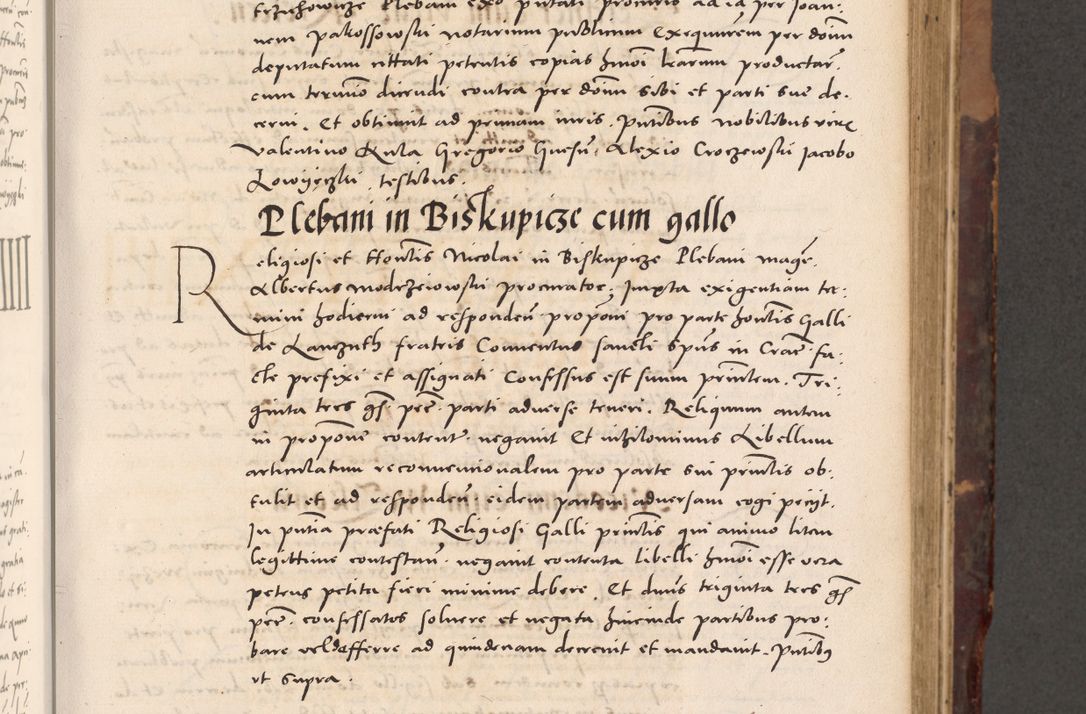 trzichowicze Plebani exo putati procurio ad id per Joan:
nem pakossowskj notarium publicum Exequutem per dominum
deputatum cittati petentis copias hmoi lrarum productar.
cum termino dicendi contra per dominum sibi et parti sue de-
cerni. Et obtinuit ad primam iuris. Pntibus nobilibus viris
Valentino Kula Gregorio Guesn. Alexio Croczewskj Jacobo
Lowyeczkj. testibus.
Plebani in Biskupicze cum gallo
Religiosi et Hontis Nicolai in Biskupicze Plebani mage.
Albertus Modrzeiowskj procurator, Juxta exigentiam ter-
mini hodierni ad responden proponi pro parte hontis Galli
de Lanczuth fratris Conuentus sancti Spus in Crac. fa-
cte prefixi et assignati Confessus est suum printem. Tri-
ginta tres gs. pec. parti aduerse teneri. Reliquum autem
in propone content. negauit Et nihilominus Libellum
articulatum reconuentionalem pro parte sui printis ob-
tulit et ad responden. eidem partem aduersam cogi petijt.
In pntia præfati Religiosi Galli printis qui animo litem
legittime contestan. negauit contenta libelli hmoi esse vera
petens petita fieri minime debere. Et dnus triginta tres gs
pec. confessatos soluere et negata hincinde partibus pro-
bare vel defferre ad quindenam decreuit et mandauit. Pntibus
vt supra.